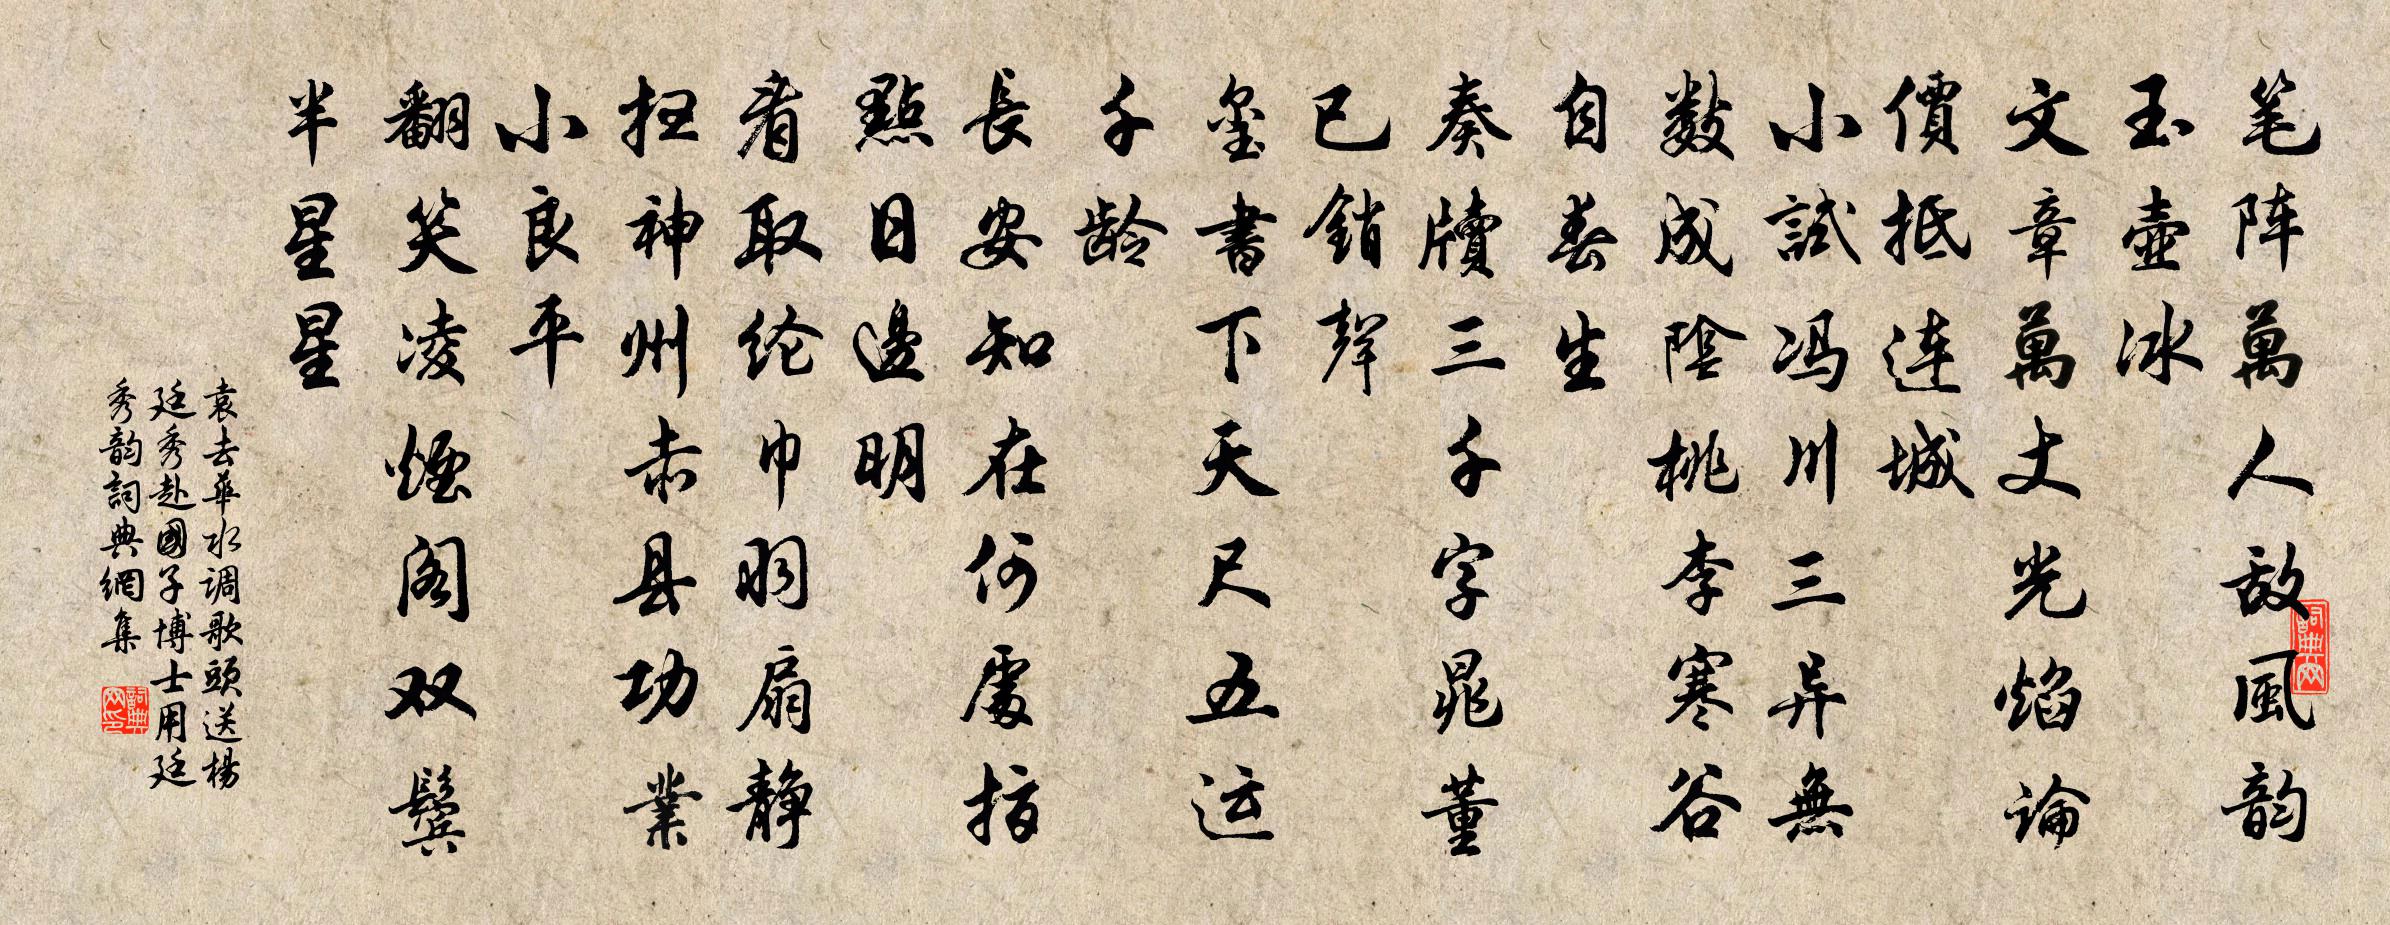 笔阵萬人敌風韵
玉壺冰
文章萬丈光焰論
價抵连城
小試冯川三异無
数成陰桃李寒谷
自春生
奏牘三千字晁董
已銷聲
玺書下天尺五运
千龄
長安知在何處指
點日邊明
看取纶巾羽扇静
扫神州赤县功業
小良平
翻笑凌煙阁双鬓
半星星
袁去華水调歌頭送楊
廷秀赴國子博士用廷
秀韵詞典網集
詞典网
詞典网印